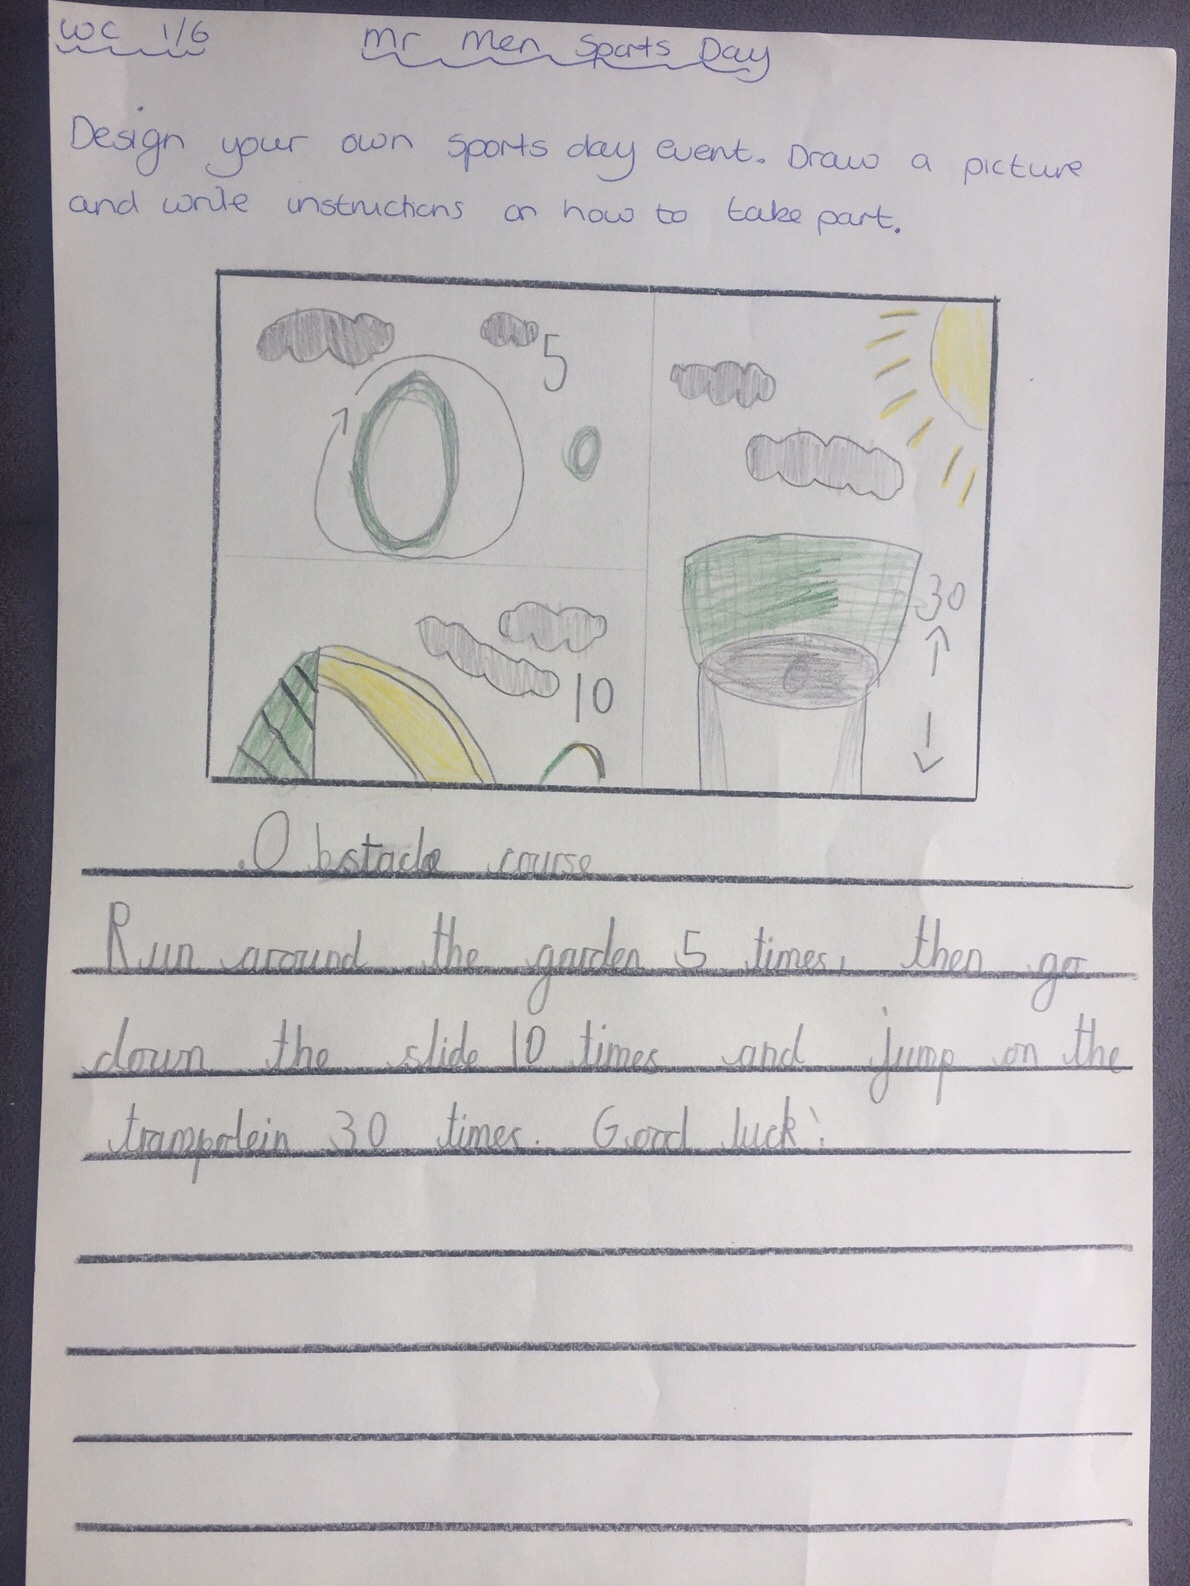 WC 1/6
Mr Men Sports Day
Design your own sports day event. Draw a picture
and write instructions on how to take part.
5
30
10
Obstacle course
Run around the garden 5 times, then go
down the slide 10 times and jump on the
trampolein 30 times. Good luck!